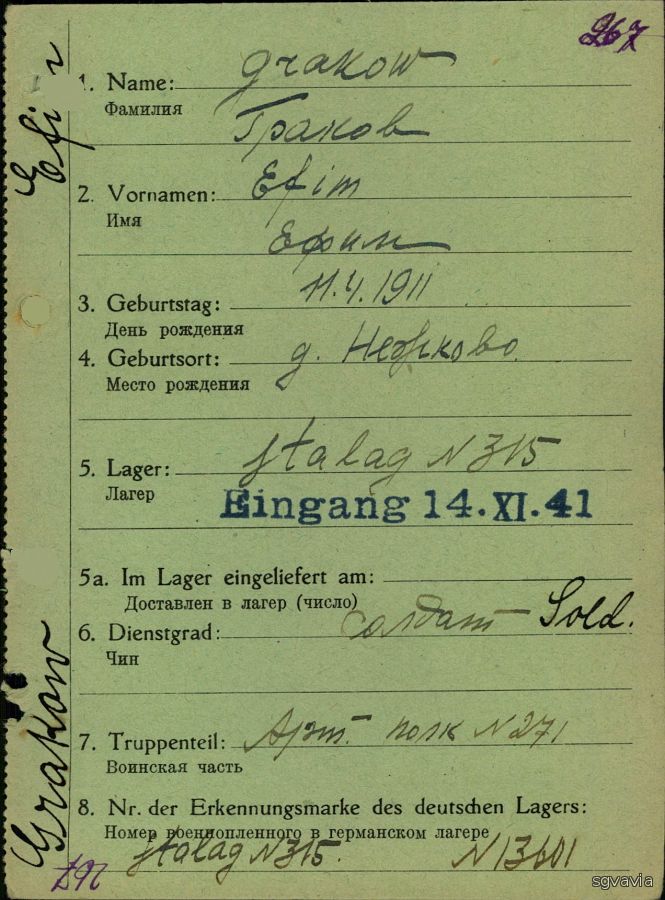 267
1. Name: Grakow
Фамилия
Граков
2. Vornamen: Efim
Имя
Ефим
3. Geburtstag: 11.4.1911
День рождения
4. Geburtsort: д.
Место рождения
5. Lager: Stalag N 315
Лагер
Eingang 14.XI.41
5a. Im Lager eingeliefert am:
Доставлен в лагер (число)
6. Dienstgrad: солдат Sold.
Чин
7. Truppenteil: Арт. полк N 271
Воинская часть
8. Nr. der Erkennungsmarke des deutschen Lagers:
Номер военнопленного в германском лагере
Stalag N 315. N 13601
Grakow
267
sgvavia